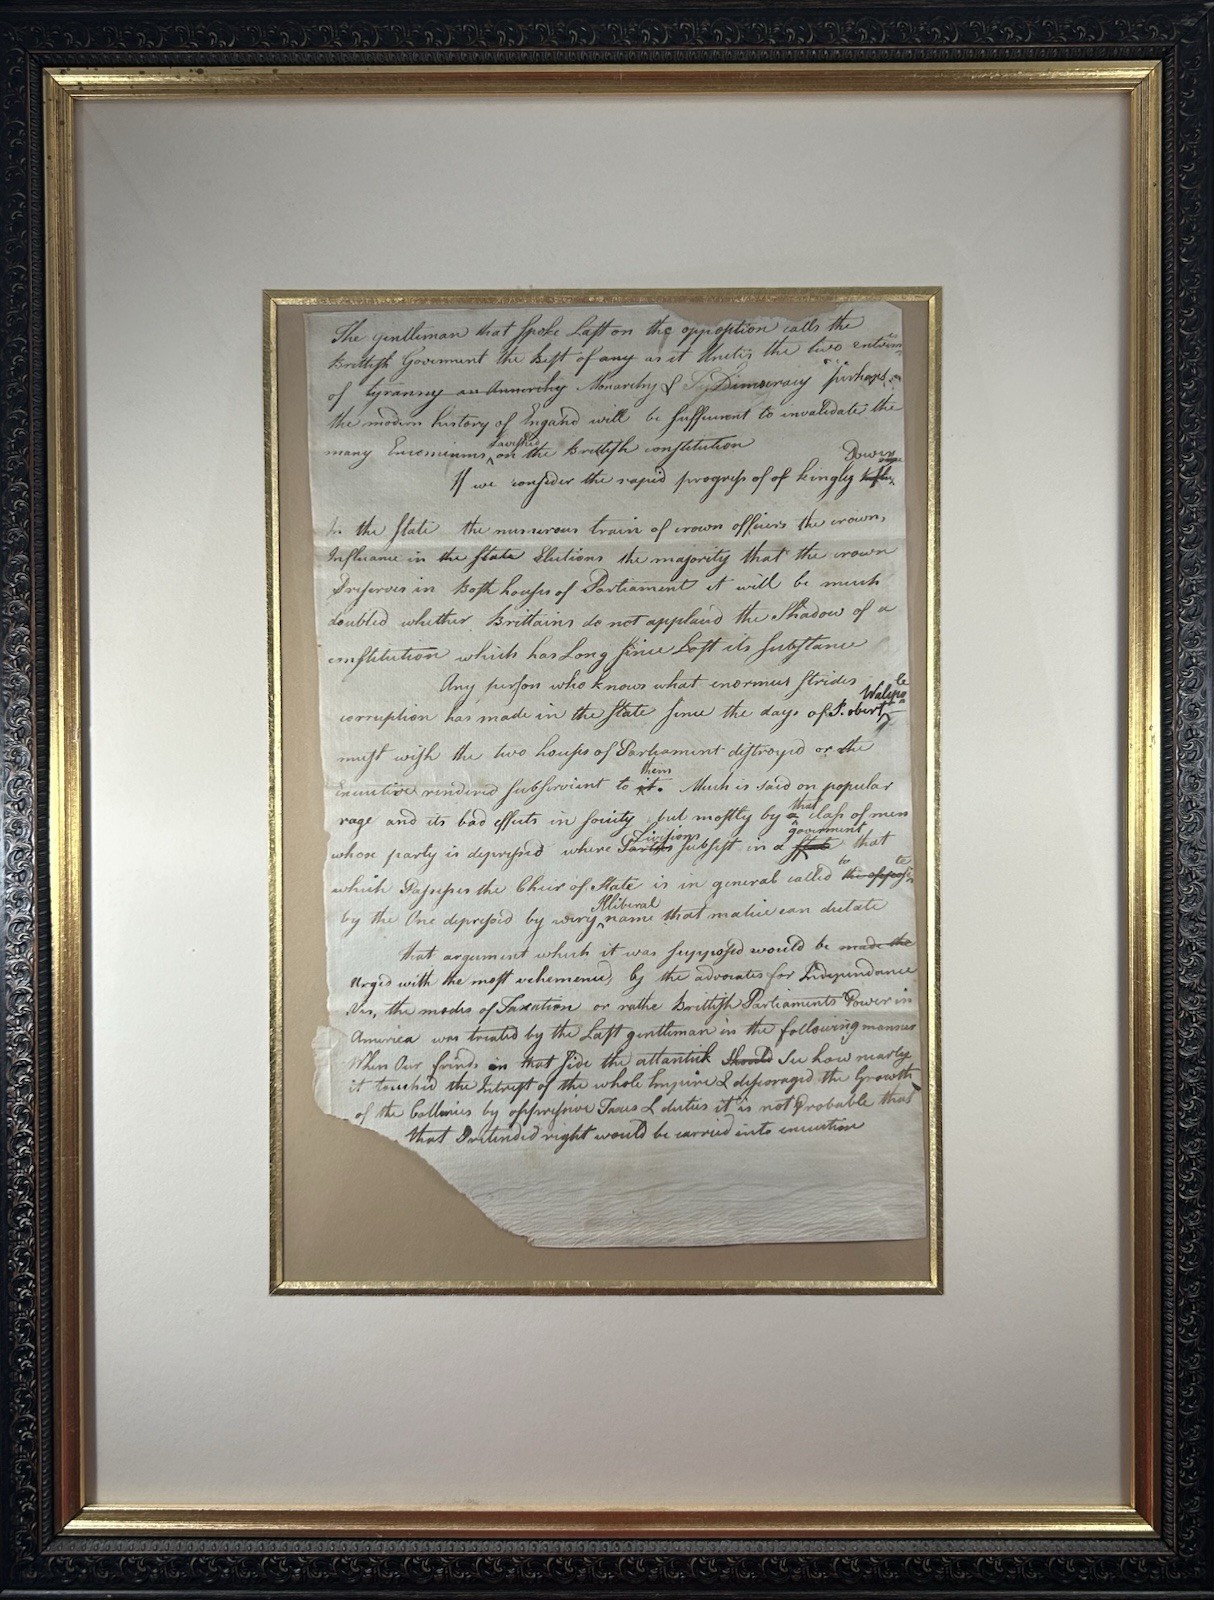 The gentleman that Spoke Last on the oppoſtion calls the
Brittiſh Goverment the Beſt of any as it Unites the two extrem
of tyranny an Annerchy Monarchy & Democracy perhaps
the modern history of England will be ſuffiecient to invalidate the
lavished
many Encomiums ^ on the Brittiſh conſtitution
Power
If we conſider the rapid progreſs of of kingly
In the ſtate the numerous train of crown officers the crown,
Influance in the ſtate Elections the majority that the crown
Preſerves in Both houſes of Parliament it will be much
doubted whether Brittains do not applaud the Shadow of a
conſtitution which has Long ſince Loſt its ſubſtance
Any perſon who knows what enormus ſtrides
Walepole
corruption has made in the ſtate ſince the days of S. obert
muſt wiſh the two houſes of Parliament diſtroyed or the
them
Executive rendered ſubſervient to it. Much is said on popular
that
rage and its bad effects in ſociety but moſtly by a claſs of men
Diviſions goverment
whose party is depreſsed where Parties ſubſiſt in a ſtate that
to te
which Poſseſses the Cheir of State is in general called the oppoſ
Illiberal
by the One depreſsed by every ^ name that malice can dictate
that argument which it was ſuppoſed would be made the
Urged with the moſt vehemence, by the advocates for Independance
Viz, the modes of Taxation or rathe Brittiſh Parliaments Power in
America was treated by the Laſt gentleman in the following manner
When Our frinds on that ſide the atlantick should See how nearly
it touched the Intreſt of the whole Empire & discoraged the Growth
of the Collonies by oppreſsive Taxes & duties it is not Probable that
that Pretended right would be carried into execution